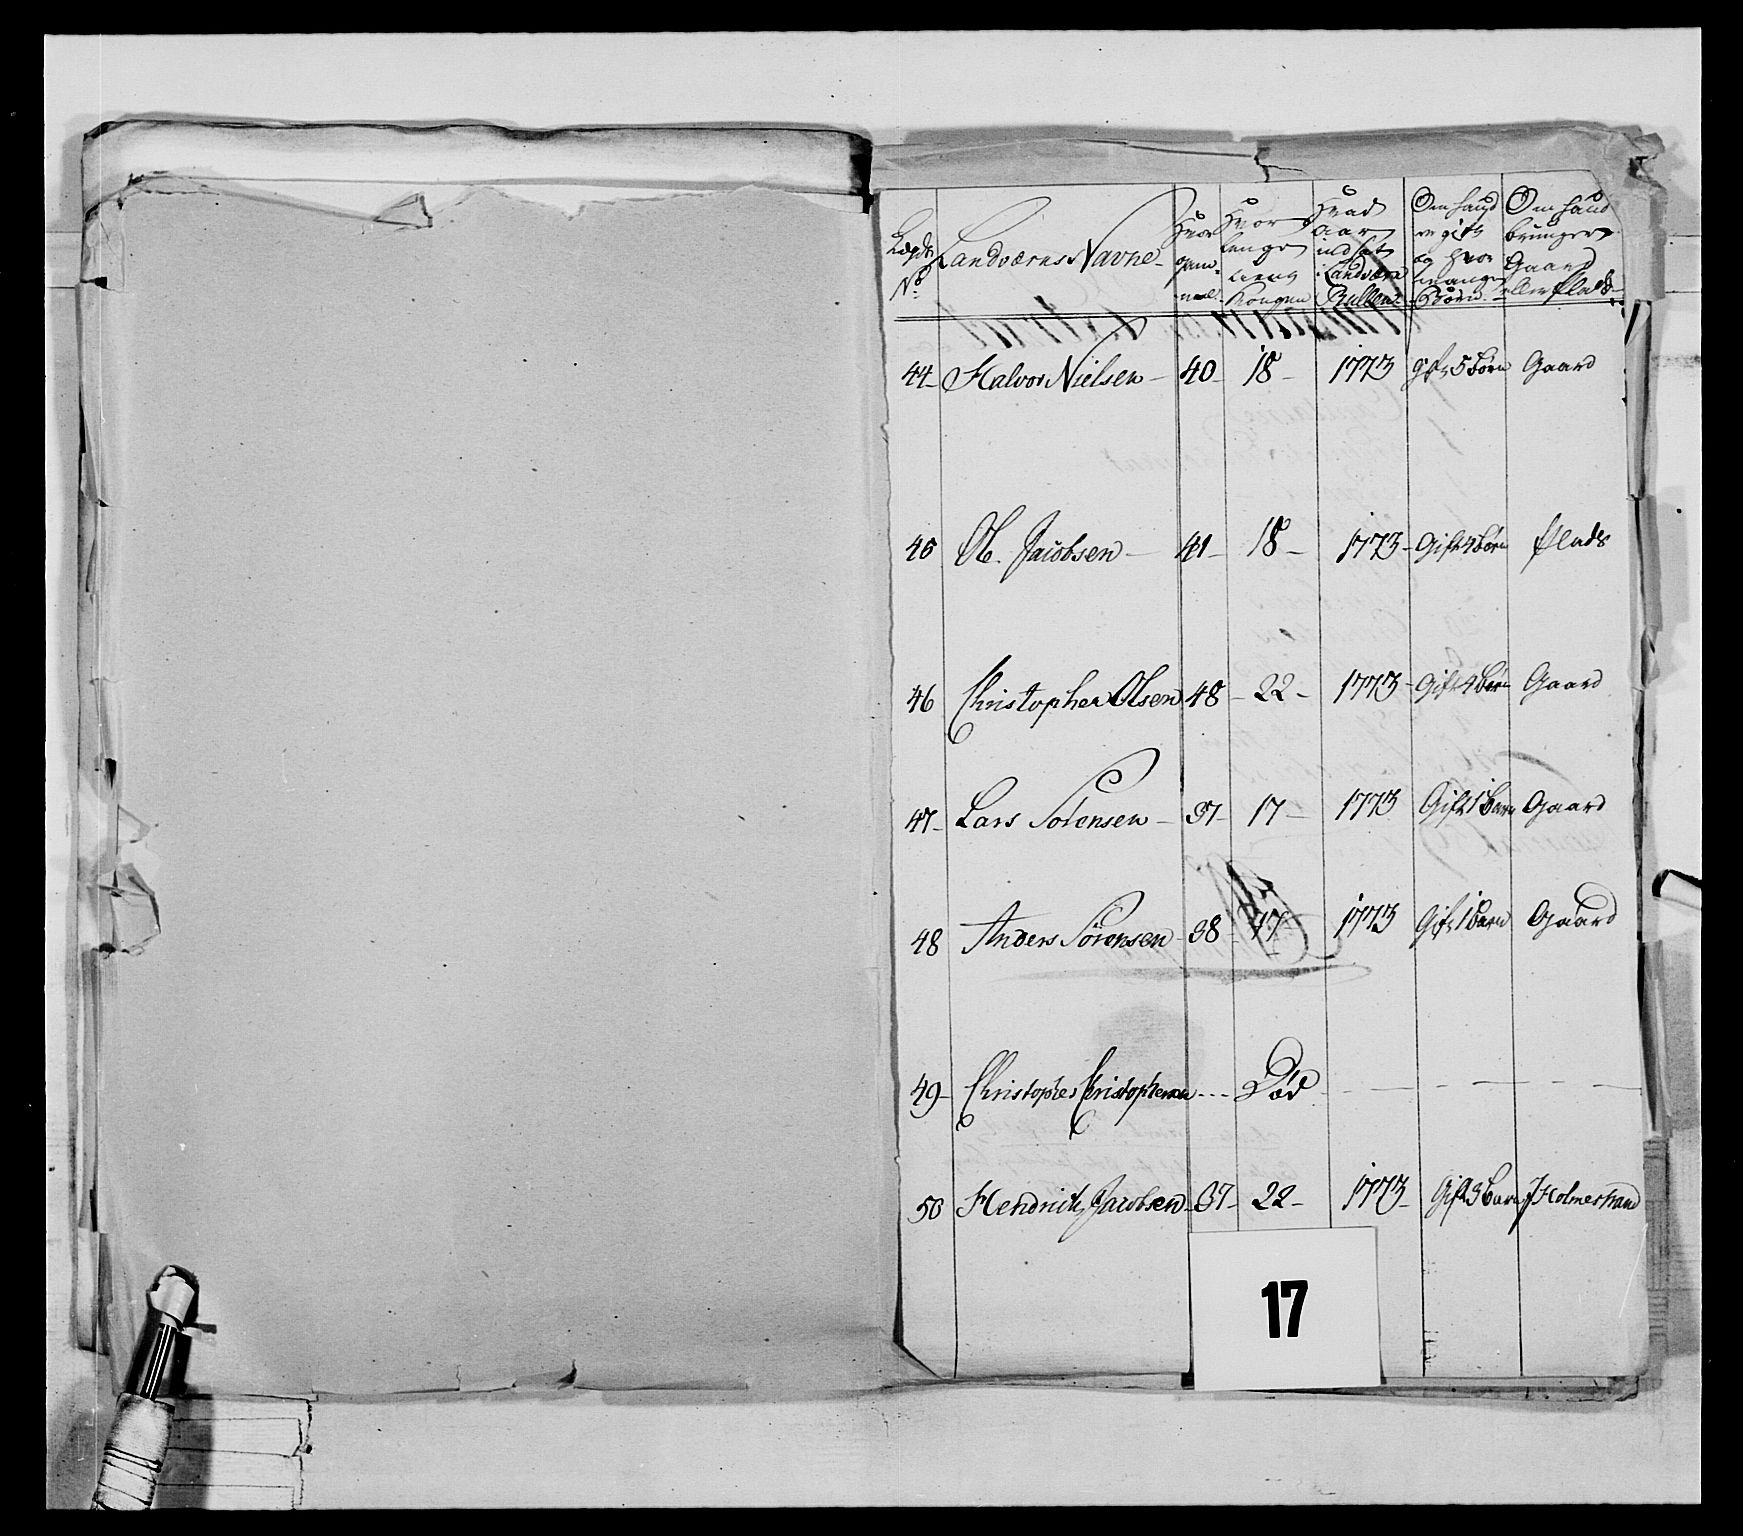 Lægds No Landværns Navne Hvor gam- mel Hvor lenge tient Kongen Hvad Aar indsat i Landværn Rullen Om hand er gift og hvor mange Børn Om hand bruuger Gaard eller Plads
44 Halvor Nielsen 40 18 1773 gift 5 børn Gaard
45 Ol. Jacobsen 41 18 1773 Gift 4 børn Plads
46 Christopher Olsen 48 22 1773 Gift 4 børn Gaard
47 Lars Sørensen 37 17 1773 Gift 1 barn Gaard
48 Anders Sørensen 38 17 1773 Gift 1 barn Gaard
49 Christopher Christophersen Død
50 Hendrich Jacobsen 37 22 1773 Gift 3 barn J Holmestrand
17